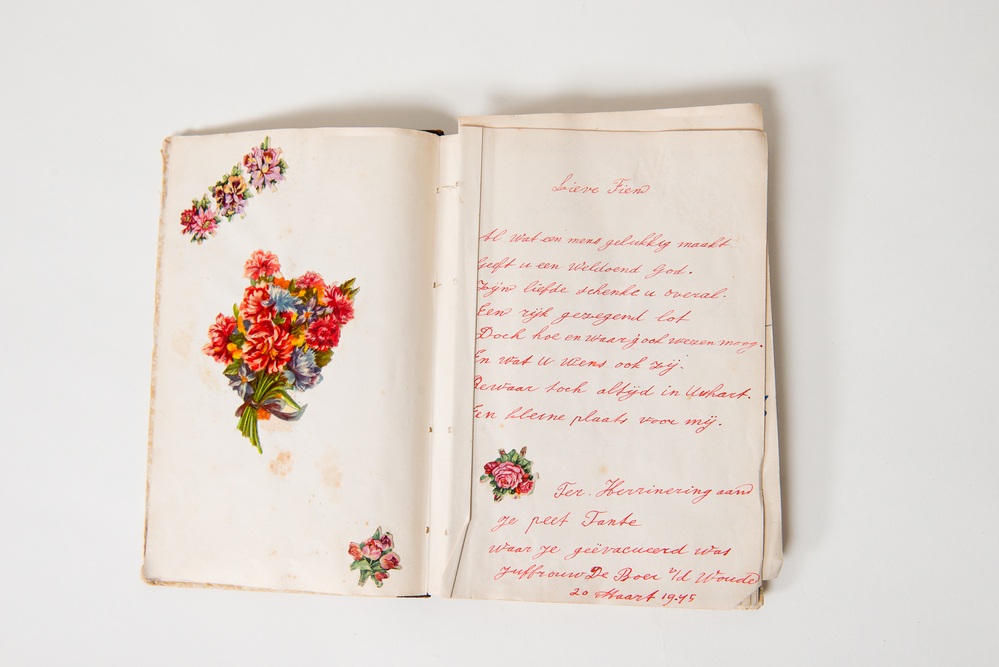 Lieve Fien
Al wat een mens gelukkig maakt
Geeft u een Weldoend God.
Zijn liefde schenke u overal.
Een rijk gezegend lot
Doch hoe en waar g'ook wezen moog.
En wat U Wens ook zij.
Bewaar toch altijd in Uw hart.
Een kleine plaats voor mij.
Ter. Herrinering aan
Je peet Tante
Waar je geëvacueerd was
Juffrouw De Boer v/d Woude
20 Maart 1945